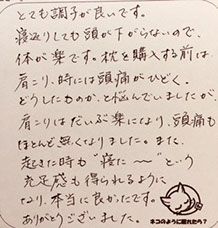 とても調子が良いです。
寝返りしても頭が下がらないので、
体が楽です。枕を購入する前は
肩こり、時には頭痛がひどく、
どうしたものか、と悩んでいましたが
肩こりはだいぶ楽になり、頭痛も
ほとんど無くなりました。また、
起きた時も“寝た〜”という
充足感も得られるように
なり、本当に良かったです。
ありがとうございました。
ネコのように眠れたら?